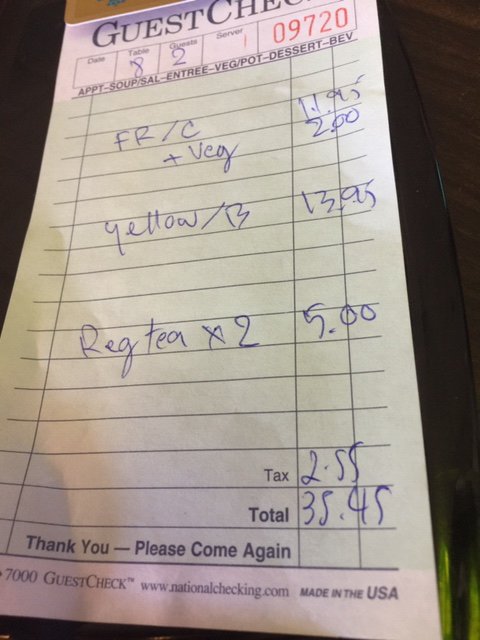 GUESTCHECK
Date Table Guests Server 09720
8 2 1
APPT-SOUP/SAL-ENTREE-VEG/POT-DESSERT-BEV
FR/C 11.95
+ Veg 2.00
yellow/B 13.95
Reg tea x 2 5.00
Tax 2.55
Total 35.45
Thank You — Please Come Again
7000 GUESTCHECK™ www.nationalchecking.com MADE IN THE USA